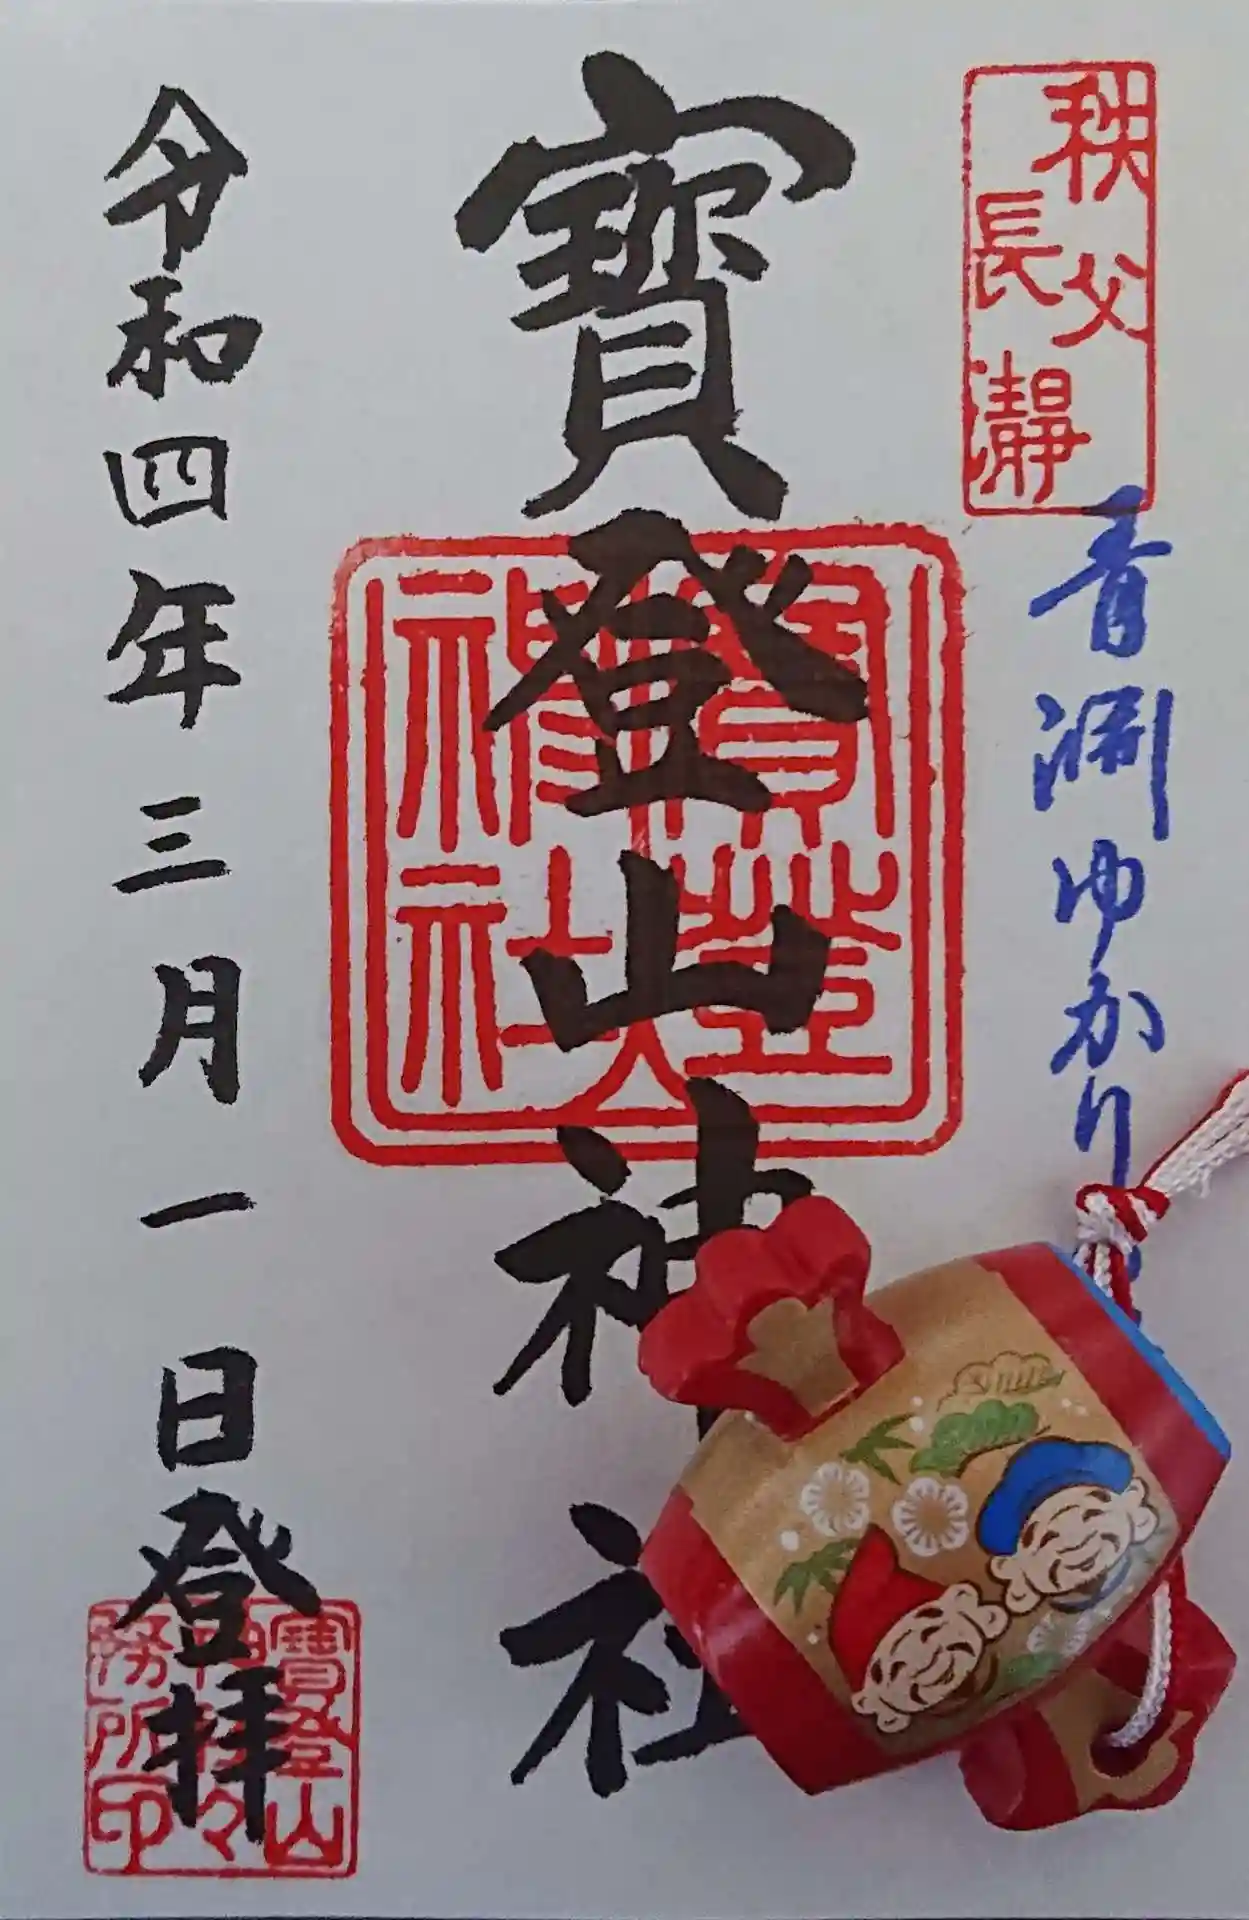 秩父
長瀞
青淵ゆかり
寶登山神社
寶登山神社
令和四年三月一日登拝
寶登山
神社々
務所印